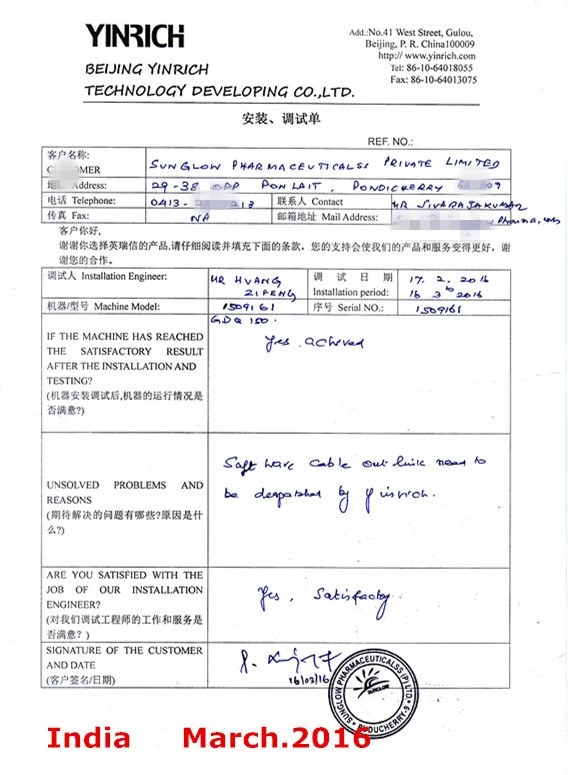 YINRICH
BEIJING YINRICH
TECHNOLOGY DEVELOPING CO.,LTD.
Add.:No.41 West Street, Gulou,
Beijing, P. R. China100009
http:// www.yinrich.com
Tel: 86-10-64018055
Fax: 86-10-64013075
安装、调试单
REF. NO.:
客户名称: SUNGLOW PHARMACEUTICALSS PRIVATE LIMITED
Address: 29-38 PONLAIT, PONDICHERRY
电话 Telephone: 0413- 联系人 Contact MR SIVARAJAKUMAR
传真 Fax: NA 邮箱地址 Mail Address:
客户你好,
谢谢你选择英瑞信的产品,请仔细阅读并填充下面的条款, 您的支持会使我们的产品和服务变得更好, 谢
谢您的合作。
调试人 Installation Engineer: MR HUANG ZIFENG
调 试 日 期 Installation period: 17. 2. 2016
16 3 2016
机器/型号 Machine Model: 1509161
GDQ 150.
序号 Serial NO.: 1509161
IF THE MACHINE HAS REACHED
THE SATISFACTORY RESULT
AFTER THE INSTALLATION AND
TESTING?
(机器安装调试后,机器的运行情况是
否满意?)
Yes. acheved
UNSOLVED PROBLEMS AND
REASONS
(期待解决的问题有哪些?原因是什
么?)
Soft ware cable out link need to
be despatched by Yinrich.
ARE YOU SATISFIED WITH THE
JOB OF OUR INSTALLATION
ENGINEER?
(对我们调试工程师的工作和服务是
否满意? )
Yes, Satisfactory
SIGNATURE OF THE CUSTOMER
AND DATE
(客户签名/日期)
16/03/16
SUNGLOW PHARMACEUTICALSS (P) LTD.
SUNGLOW
PUDUCHERRY-9
India March.2016